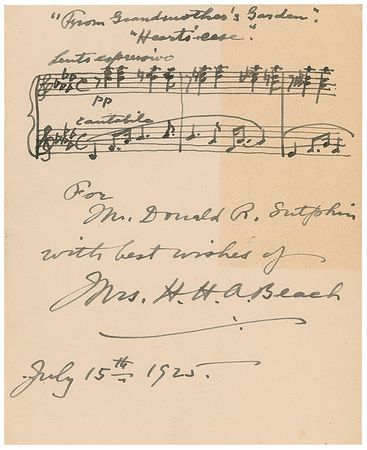 "From Grandmother's Garden".
"Heart's-ease".
Lento espressivo
pp
cantabile
For
Mr. Donald R. Sutphin
with best wishes of
Mrs. H. H. A. Beach
July 15th 1925.